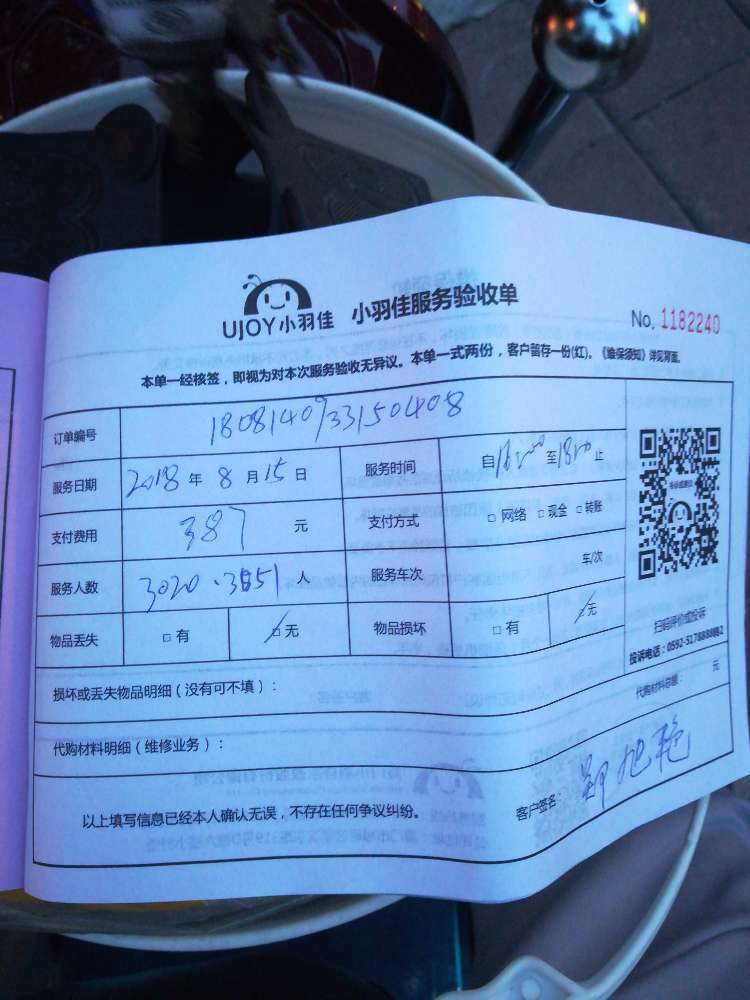 UJOY小羽佳 小羽佳服务验收单
No. 1182240
本单一经核签，即视为对本次服务验收无异议。本单一式两份，客户留存一份(红)。《维保须知》详见背面。
订单编号 180814093315040​8
服务日期 2018 年 8 月 15 日 服务时间 自 至 止
支付费用 387 元 支付方式 □ 网络 □ 现金 □ 转账
服务人数 3020、3851 人 服务车次 车/次
物品丢失 □ 有 □ 无 物品损坏 □ 有 □ 无
扫码评价或投诉
投诉电话：0592-5178888转2
损坏或丢失物品明细（没有可不填）：
代购材料明细（维修业务）： 代购材料总额： 元
以上填写信息已经本人确认无误，不存在任何争议纠纷。 客户签名： 郑旭艳